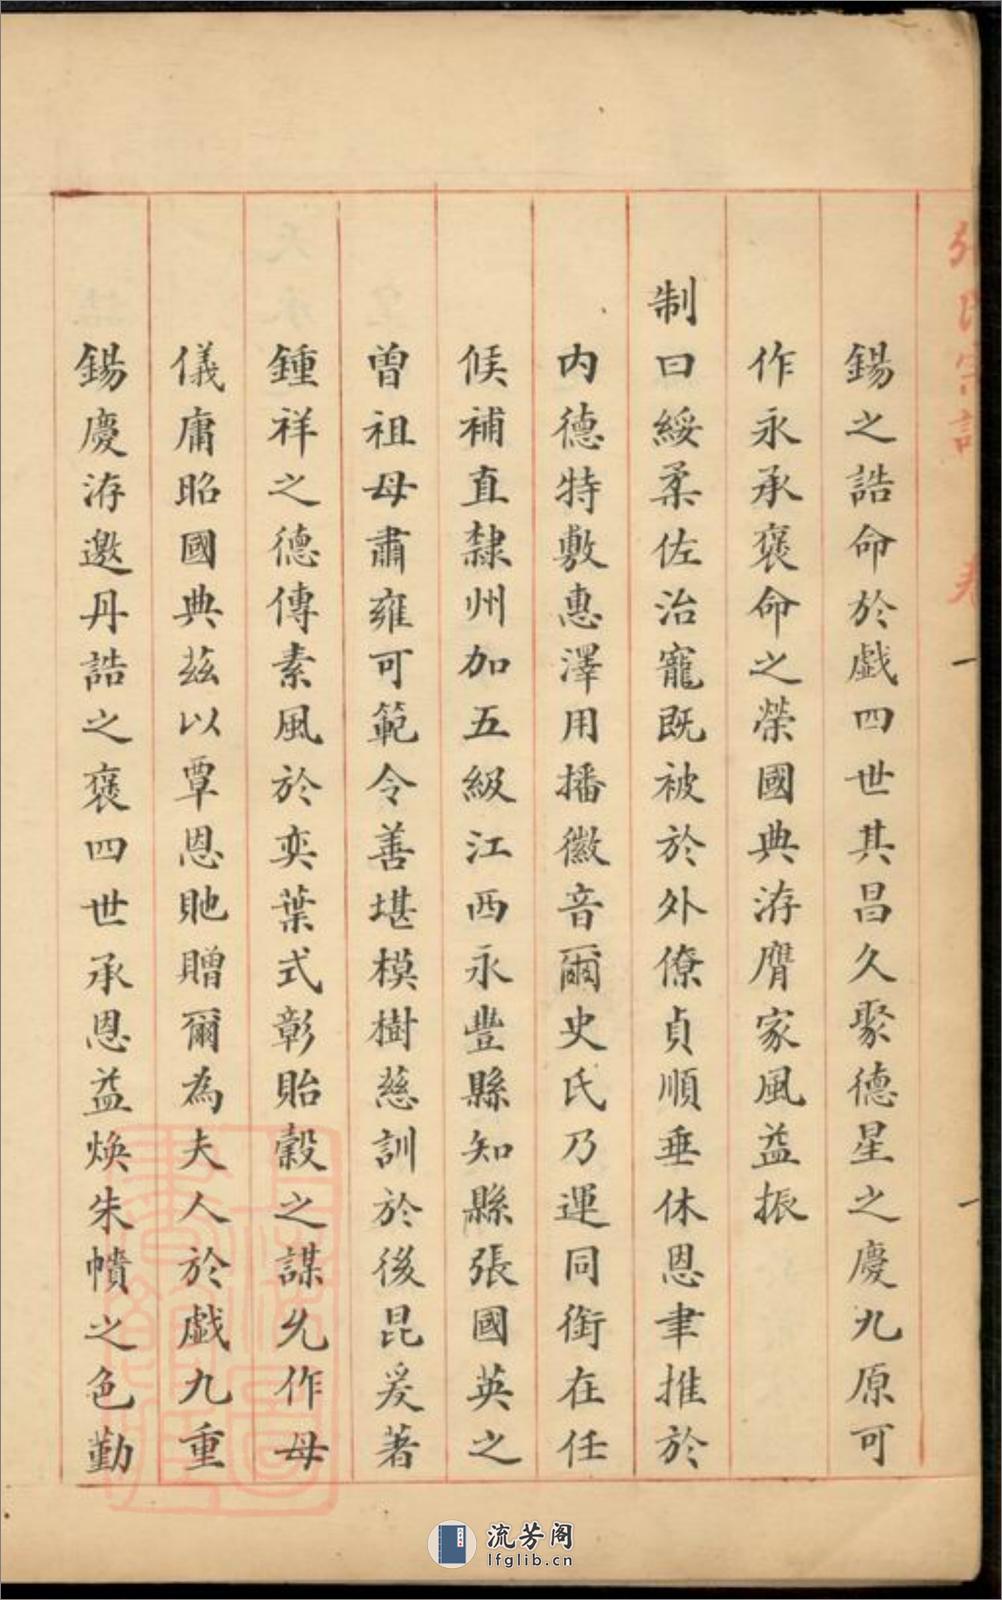 張氏宗譜 卷一 一
錫之誥命於戱四世其昌久聚德星之慶九原可
作永承褒命之榮國典洊膺家風益振
制曰綏柔佐治寵既被於外僚貞順垂休恩聿推於
内德特敷惠澤用播徽音爾史氏乃運同銜在任
候補直隸州加五級江西永豐縣知縣張國英之
曾祖母肅雍可範令善堪模樹慈訓於後昆爰著
鍾祥之德傳素風於奕葉式彰貽穀之謀允作母
儀庸昭國典茲以覃恩貤贈爾為夫人於戱九重
錫慶洊邀丹誥之褒四世承恩益煥朱幩之色勤
流芳阁
lfglib.cn